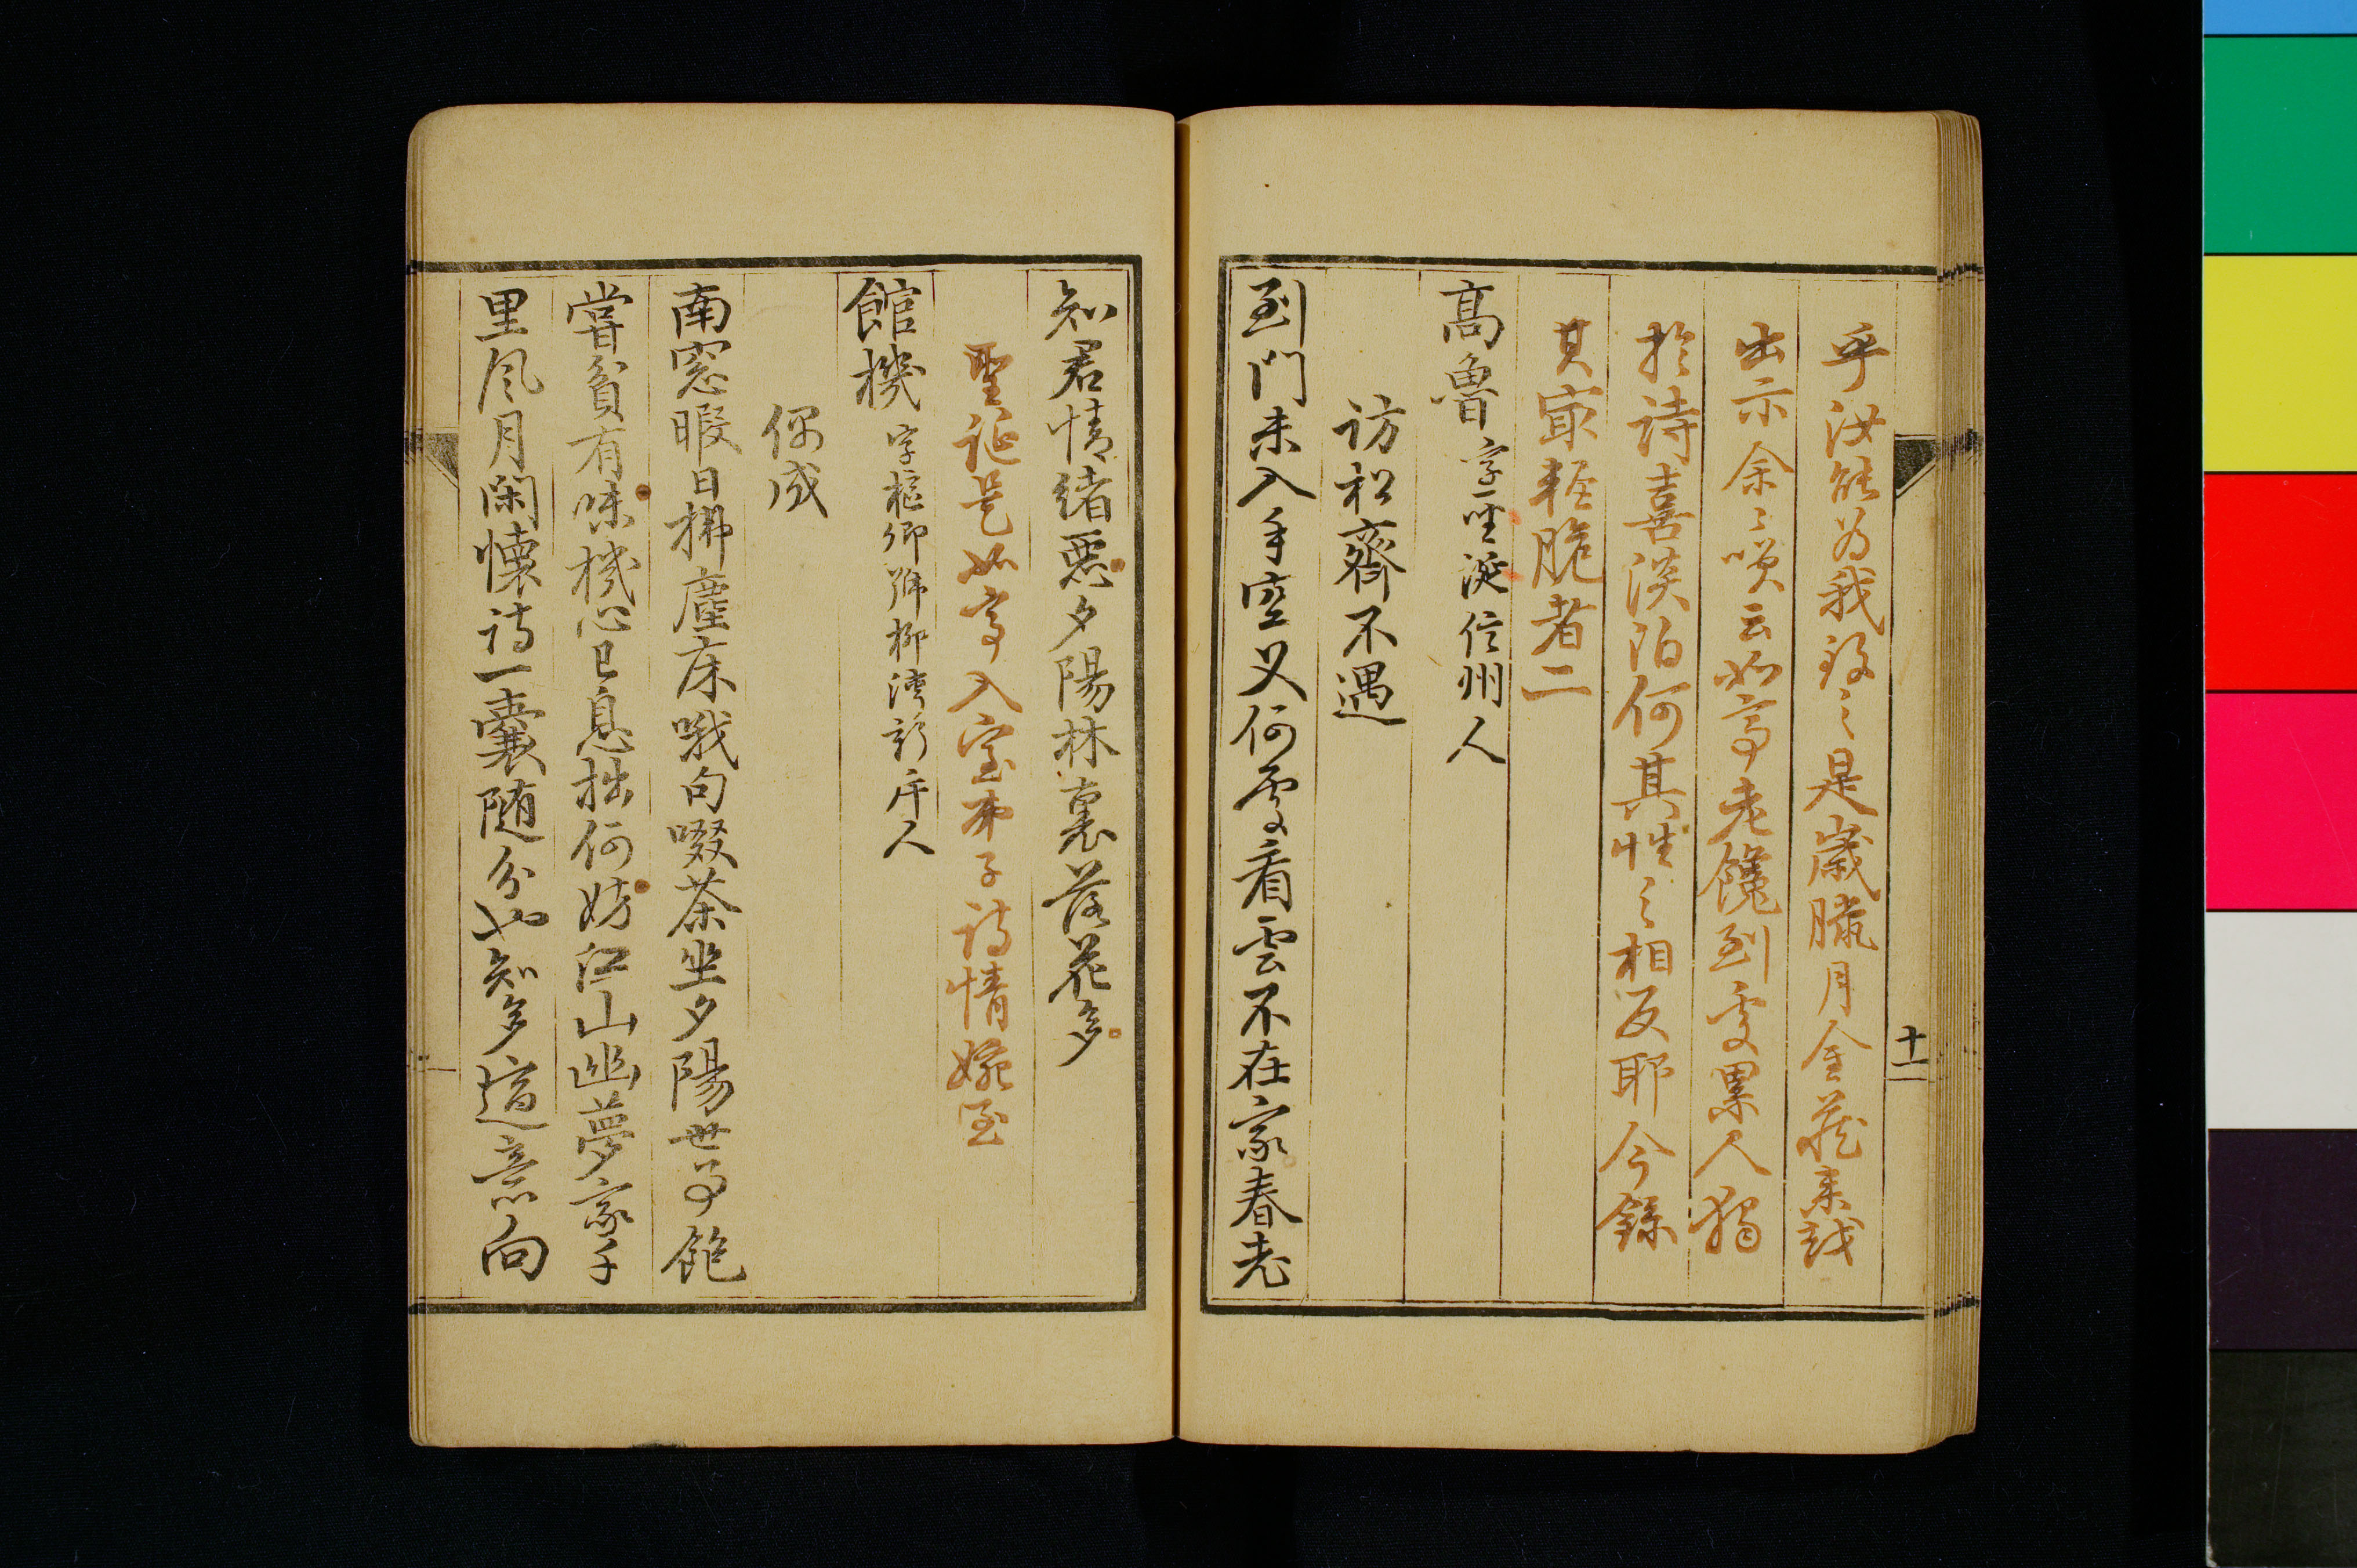 乎汝能為我致之是歲臘月全藏来越
出示余〻嘆云如亭老饞到處累人獨
於詩喜淡泊何其性之相反耶今錄
其寂輕脆者二
高魯 字聖誕信州人
訪松齋不遇
到門未入手空叉何處看雲不在家春老
十一
知君情緒惡夕陽林裏落花多
聖誕是如亭入室弟子詩情婉至
館機 字樞卿號柳湾新斥人
偶成
南窓暇日拂塵床哦句啜茶坐夕陽世事飽
嘗貧有味機心已息拙何妨江山幽夢家千
里風月閑懷詩一囊随分也知多適意向